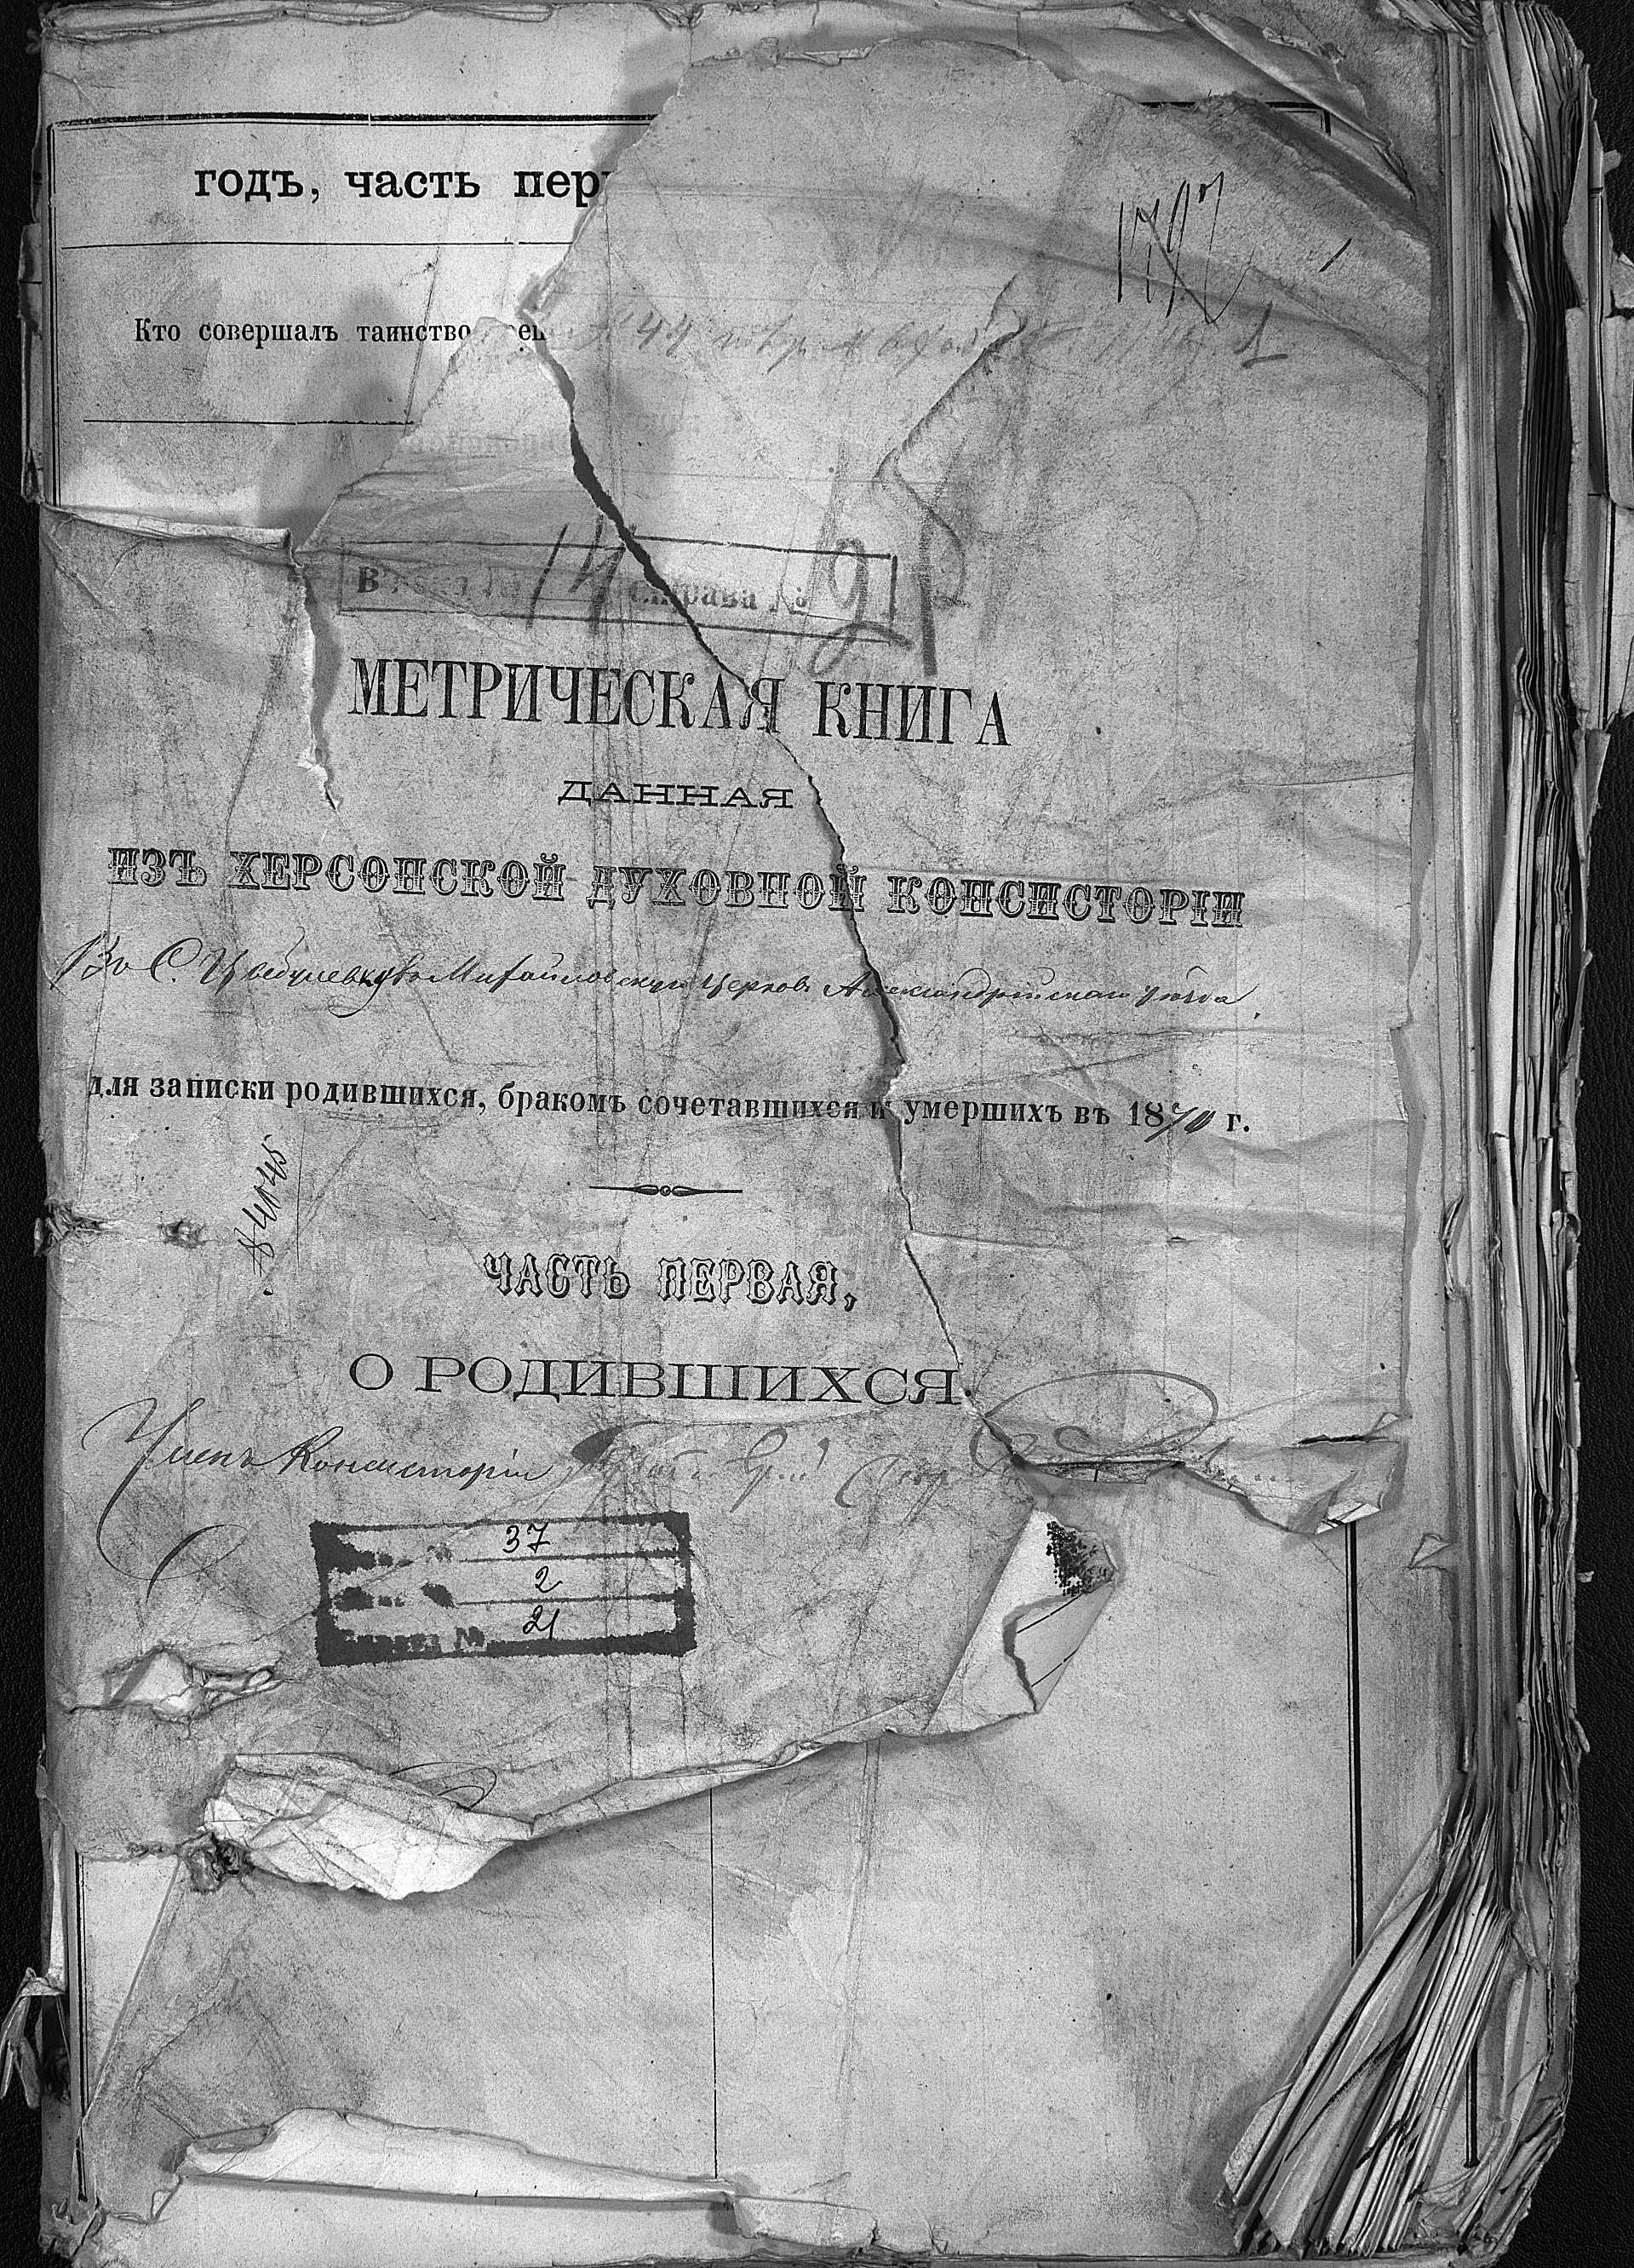 годъ, часть пер
1792
Кто совершалъ таинство
1
14 справа № 21
МЕТРИЧЕСКАЯ КНИГА
ДАННАЯ
ИЗЪ ХЕРСОНСКОЙ ДУХОВНОЙ КОНСИСТОРІИ
Въ С. Цыбулевку во Михайловскую Церковь Александрійскаго уѣзда
для записки родившихся, бракомъ сочетавшихся и умершихъ въ 1870 г.
4045
ЧАСТЬ ПЕРВАЯ,
О РОДИВШИХСЯ.
Членъ Консисторіи
37
2
№ 21